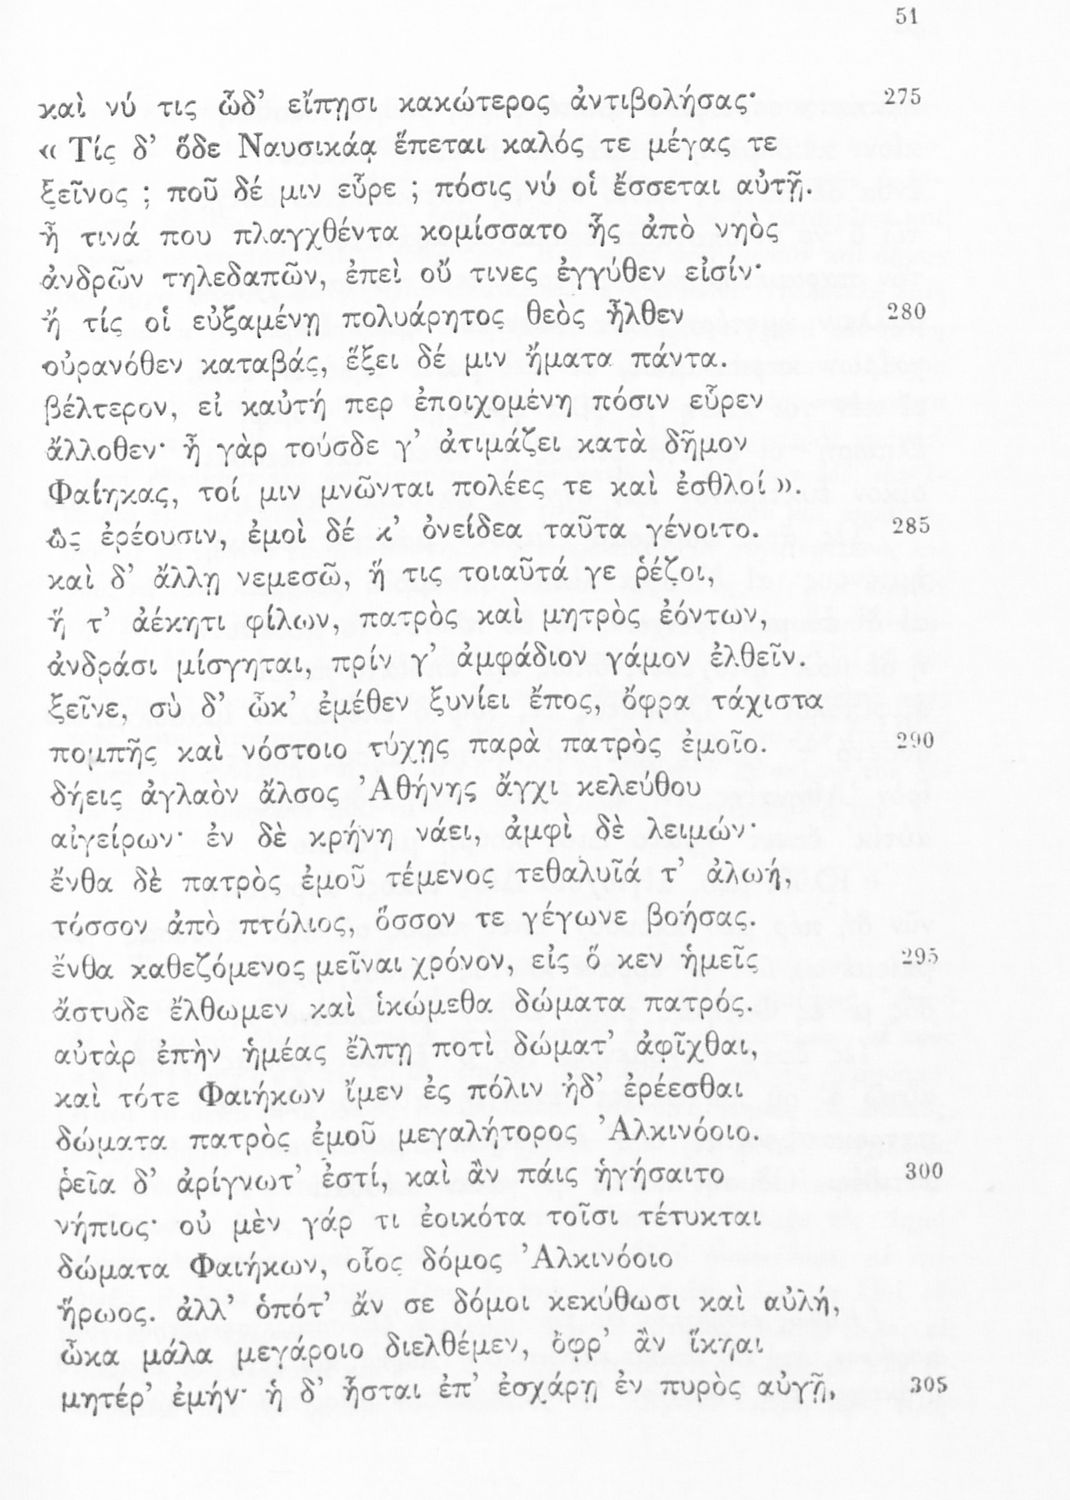 51
καὶ νύ τις ὧδ’ εἴπῃσι κακώτερος ἀντιβολήσας· 275
« Τίς δ’ ὅδε Ναυσικάᾳ ἕπεται καλός τε μέγας τε
ξεῖνος ; ποῦ δέ μιν εὗρε ; πόσις νύ οἱ ἔσσεται αὐτῇ.
ἦ τινά που πλαγχθέντα κομίσσατο ἧς ἀπὸ νηὸς
ἀνδρῶν τηλεδαπῶν, ἐπεὶ οὔ τινες ἐγγύθεν εἰσίν·
ἤ τίς οἱ εὐξαμένῃ πολυάρητος θεὸς ἦλθεν 280
οὐρανόθεν καταβάς, ἕξει δέ μιν ἤματα πάντα.
βέλτερον, εἰ καὐτή περ ἐποιχομένη πόσιν εὗρεν
ἄλλοθεν· ἦ γὰρ τούσδε γ’ ἀτιμάζει κατὰ δῆμον
Φαίηκας, τοί μιν μνῶνται πολέες τε καὶ ἐσθλοί ».
ὣς ἐρέουσιν, ἐμοὶ δέ κ’ ὀνείδεα ταῦτα γένοιτο. 285
καὶ δ’ ἄλλῃ νεμεσῶ, ἥ τις τοιαῦτά γε ῥέζοι,
ἥ τ’ ἀέκητι φίλων, πατρὸς καὶ μητρὸς ἐόντων,
ἀνδράσι μίσγηται, πρίν γ’ ἀμφάδιον γάμον ἐλθεῖν.
ξεῖνε, σὺ δ’ ὦκ’ ἐμέθεν ξυνίει ἔπος, ὄφρα τάχιστα
πομπῆς καὶ νόστοιο τύχῃς παρὰ πατρὸς ἐμοῖο. 290
δήεις ἀγλαὸν ἄλσος Ἀθήνης ἄγχι κελεύθου
αἰγείρων· ἐν δὲ κρήνη νάει, ἀμφὶ δὲ λειμών·
ἔνθα δὲ πατρὸς ἐμοῦ τέμενος τεθαλυῖά τ’ ἀλωή,
τόσσον ἀπὸ πτόλιος, ὅσσον τε γέγωνε βοήσας.
ἔνθα καθεζόμενος μεῖναι χρόνον, εἰς ὅ κεν ἡμεῖς 295
ἄστυδε ἔλθωμεν καὶ ἱκώμεθα δώματα πατρός.
αὐτὰρ ἐπὴν ἡμέας ἔλπῃ ποτὶ δώματ’ ἀφῖχθαι,
καὶ τότε Φαιήκων ἴμεν ἐς πόλιν ἠδ’ ἐρέεσθαι
δώματα πατρὸς ἐμοῦ μεγαλήτορος Ἀλκινόοιο.
ῥεῖα δ’ ἀρίγνωτ’ ἐστί, καὶ ἂν πάις ἡγήσαιτο 300
νήπιος· οὐ μὲν γάρ τι ἐοικότα τοῖσι τέτυκται
δώματα Φαιήκων, οἷος δόμος Ἀλκινόοιο
ἥρωος. ἀλλ’ ὁπότ’ ἄν σε δόμοι κεκύθωσι καὶ αὐλή,
ὦκα μάλα μεγάροιο διελθέμεν, ὄφρ’ ἂν ἵκηαι
μητέρ’ ἐμήν· ἡ δ’ ἧσται ἐπ’ ἐσχάρῃ ἐν πυρὸς αὐγῇ, 305